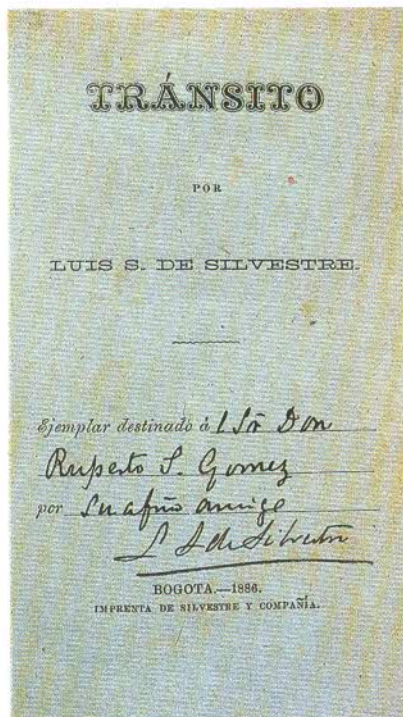 TRÁNSITO
POR
LUIS S. DE SILVESTRE.
Ejemplar destinado á l Sr Don
Ruperto S. Gomez
por su afmo amigo
L S de Silvestre
BOGOTA.—1886.
IMPRENTA DE SILVESTRE Y COMPAÑÍA.